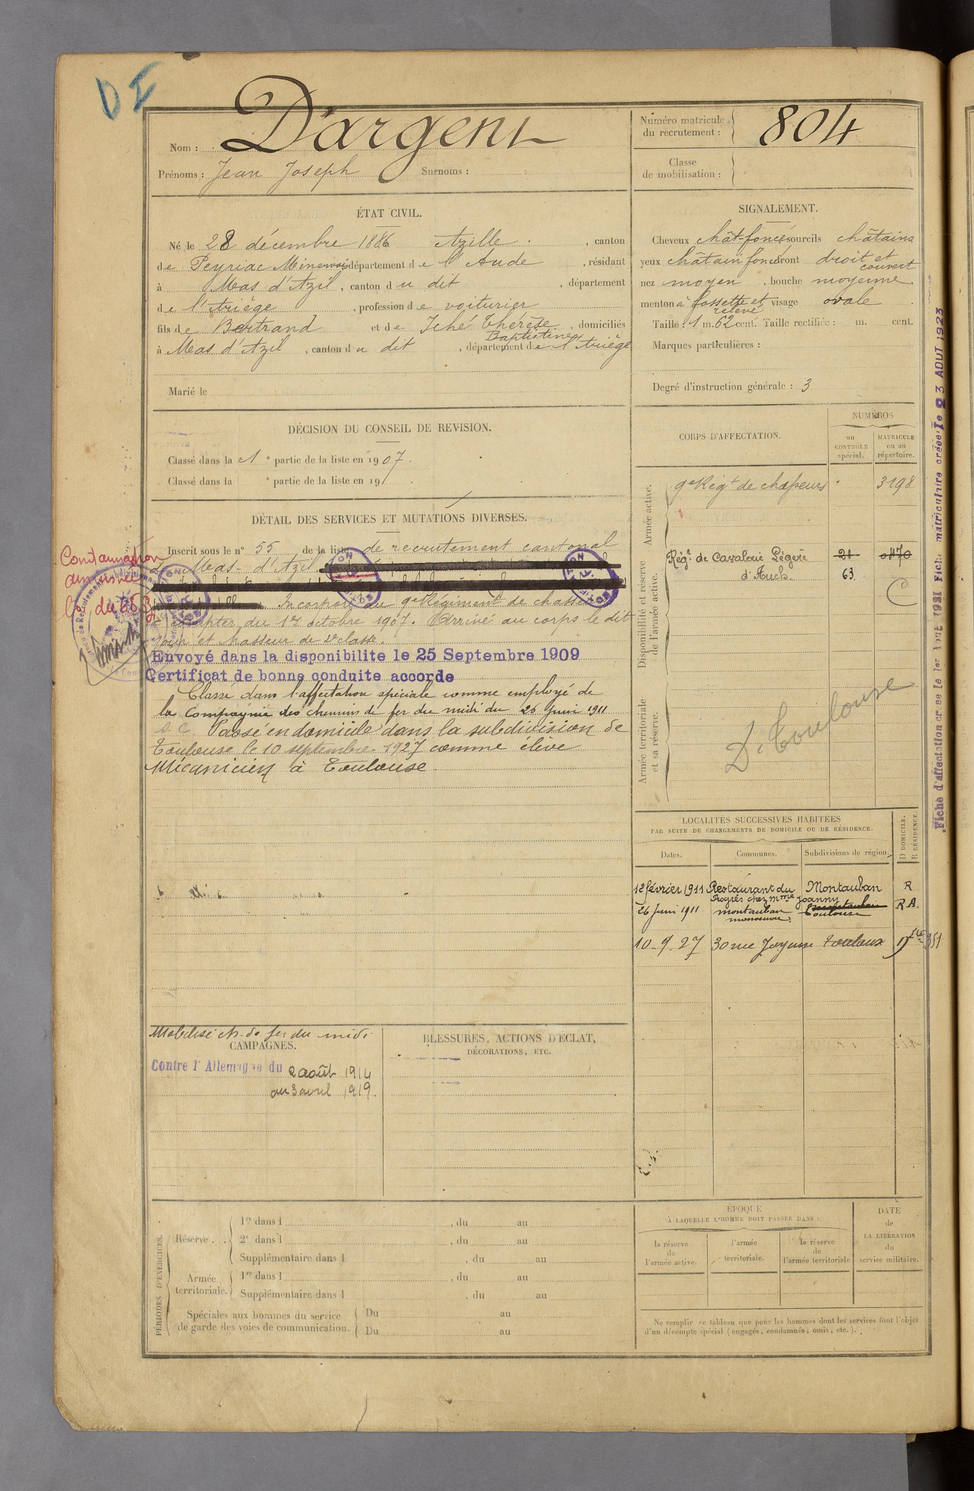 DI
Nom : D'argent
Prénoms : Jean Joseph Surnoms :
Numéro matricule du recrutement : 804
Classe de mobilisation :
ÉTAT CIVIL.
Né le 28 décembre 1886 Azille , canton
de Peyriac Minervois département de l'Aude , résidant
à Mas d'Azil , canton du dit , département
de l'Ariège , profession de voiturier
fils de Bertrand et de Iché Thérèse Baptistine , domiciliés
à Mas d'Azil , canton du dit , département de l'Ariège
Marié le
SIGNALEMENT.
Cheveux chât-foncé sourcils châtains
yeux châtain foncé front droit et couvert
nez moyen , bouche moyenne
menton à fossette et relevé visage ovale
Taille : 1 m. 62 cent. Taille rectifiée : m. cent.
Marques particulières :
Degré d'instruction générale : 3
DÉCISION DU CONSEIL DE REVISION.
Classé dans la 1e partie de la liste en 1907.
Classé dans la e partie de la liste en 19
DÉTAIL DES SERVICES ET MUTATIONS DIVERSES.
Inscrit sous le n° 55 de la liste de recrutement cantonal
Mas-d'Azil
Incorporé au 9e Régiment de chasseurs
à compter du 1er octobre 1907. Arrivé au corps le dit
jour et chasseur de 2e classe.
Envoyé dans la disponibilite le 25 Septembre 1909
Certificat de bonne conduite accorde
Classé dans l'affectation spéciale comme employé de
la Compagnie des chemins de fer du midi du 26 Juin 1911
Passé en domicile dans la subdivision de
Toulouse le 10 septembre 1927 comme élève
Mécanicien à Toulouse.
Condamnation
amnistiée
CORPS D'AFFECTATION.
NUMÉROS
au CONTRÔLE spécial.
MATRICULE ou au répertoire.
Armée active.
9e Régt de chasseurs 3198
Disponibilité et réserve de l'armée active.
Régt de Cavalerie Légère 21
d'Auch. 63 C
Armée territoriale et sa réserve.
D. Toulouse
Fiche d'affectation créée le 1er Août 1921 Fiche matriculaire créée le 23 AOUT 1923
LOCALITÉS SUCCESSIVES HABITÉES
PAR SUITE DE CHANGEMENTS DE DOMICILE OU DE RÉSIDENCE.
Dates. Communes. Subdivisions de région. D DOMICILE. R RÉSIDENCE.
12 février 1911 Restaurant du Progrès chez Mme Joanny Montauban R
26 Juin 1911 montauban Toulouse R.A.
10.9.27 30 rue Toulouse
Mobilisé ch. de fer du midi
CAMPAGNES.
Contre l'Allemagne du 2 août 1914
au 3 avril 1919.
BLESSURES, ACTIONS D'ÉCLAT,
DÉCORATIONS, ETC.
PÉRIODES D'EXERCICES.
Réserve . . .
1re dans l , du au
2e dans l , du au
Supplémentaire dans l , du au
Armée territoriale.
1re dans l , du au
Supplémentaire dans l , du au
Spéciales aux hommes du service de garde des voies de communication.
Du au
Du au
ÉPOQUE
À LAQUELLE L'HOMME DOIT PASSER DANS :
la réserve de l'armée active.
l'armée territoriale.
la réserve de l'armée territoriale
DATE de LA LIBÉRATION du service militaire.
Ne remplir ce tableau que pour les hommes dont les services font l'objet
d'un décompte spécial (engagés, condamnés, omis, etc.).